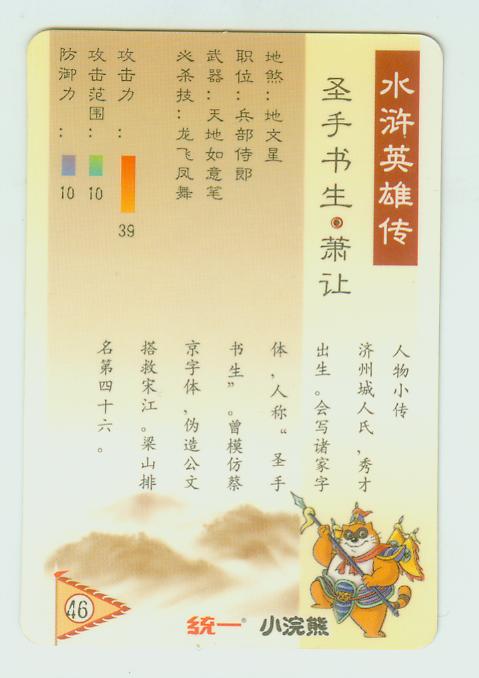 水浒英雄传
圣手书生·萧让
地煞：地文星
职位：兵部侍郎
武器：天地如意笔
必杀技：龙飞凤舞
攻击力：
39
攻击范围：
10
防御力：
10
人物小传
济州城人氏，秀才
出生。会写诸家字
体，人称“圣手
书生”。曾模仿蔡
京字体，伪造公文
搭救宋江。梁山排
名第四十六。
46
统一 小浣熊